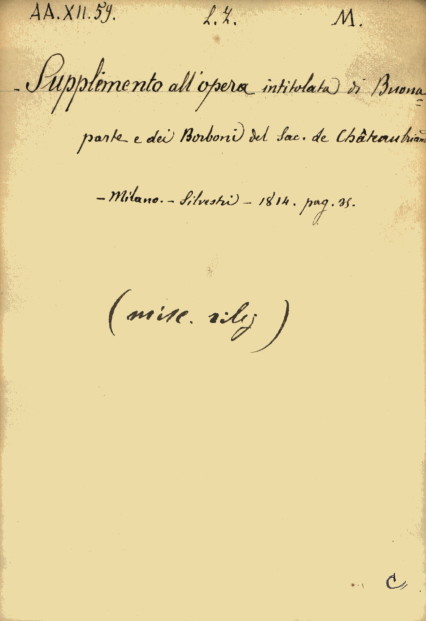 AA.XII.59. L.Z. M.
Supplimento all'opera intitolata di Buona=
parte e dei Borboni del Sac. de Châteaubrian
- Milano. - Silvestri - 1814. pag. 25.
(misc. rileg)
C